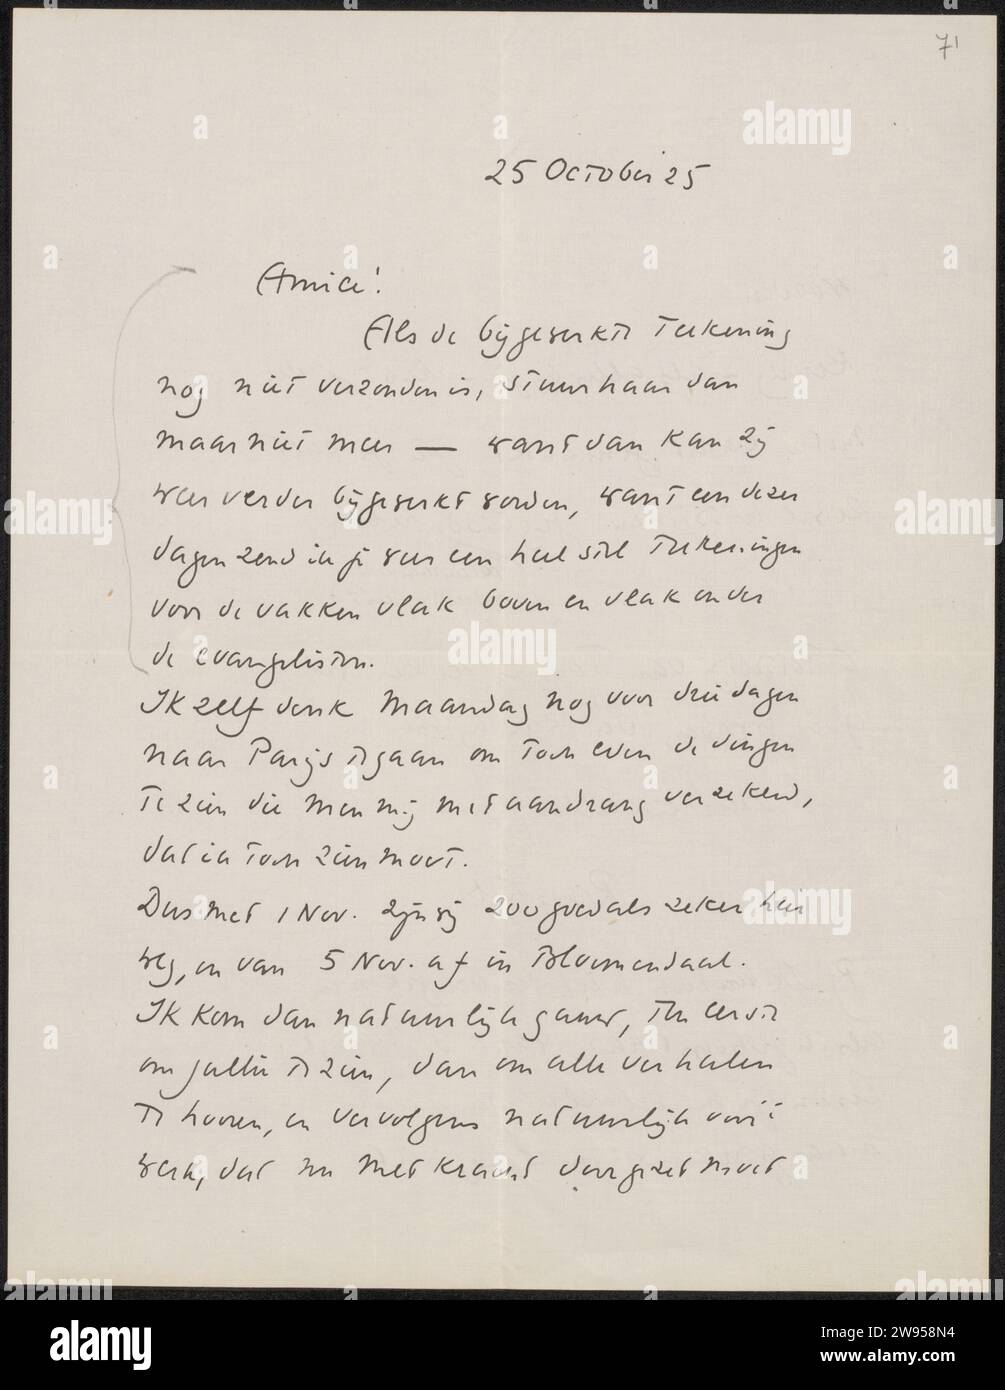 71
25 October 25
Amice!
Als de bijgewerkte teekening
nog niet verzonden is, stuur haar dan
maar niet meer — want dan kan zij
weer verder bijgewerkt worden, want een dezer
dagen zend ik je weer een heel stel teekeningen
voor de vakken vlak boven en vlak onder
de evangelisten.
Ik zelf denk Maandag nog voor drie dagen
naar Parijs te gaan om toch even de dingen
te zien die men mij met aandrang verzekerd,
dat ik toch zien moet.
Dus met 1 Nov. zijn wij zoo goed als zeker hier
weg, en van 5 Nov. af in Bloemendaal.
Ik kom dan natuurlijk gauw, ten eerste
om jullie te zien, dan om alle verhalen
te hooren, en vervolgens natuurlijk voor 't
werk, dat nu met kracht doorgezet moet
alamy
www.alamy.com
Image ID: 2W958N4